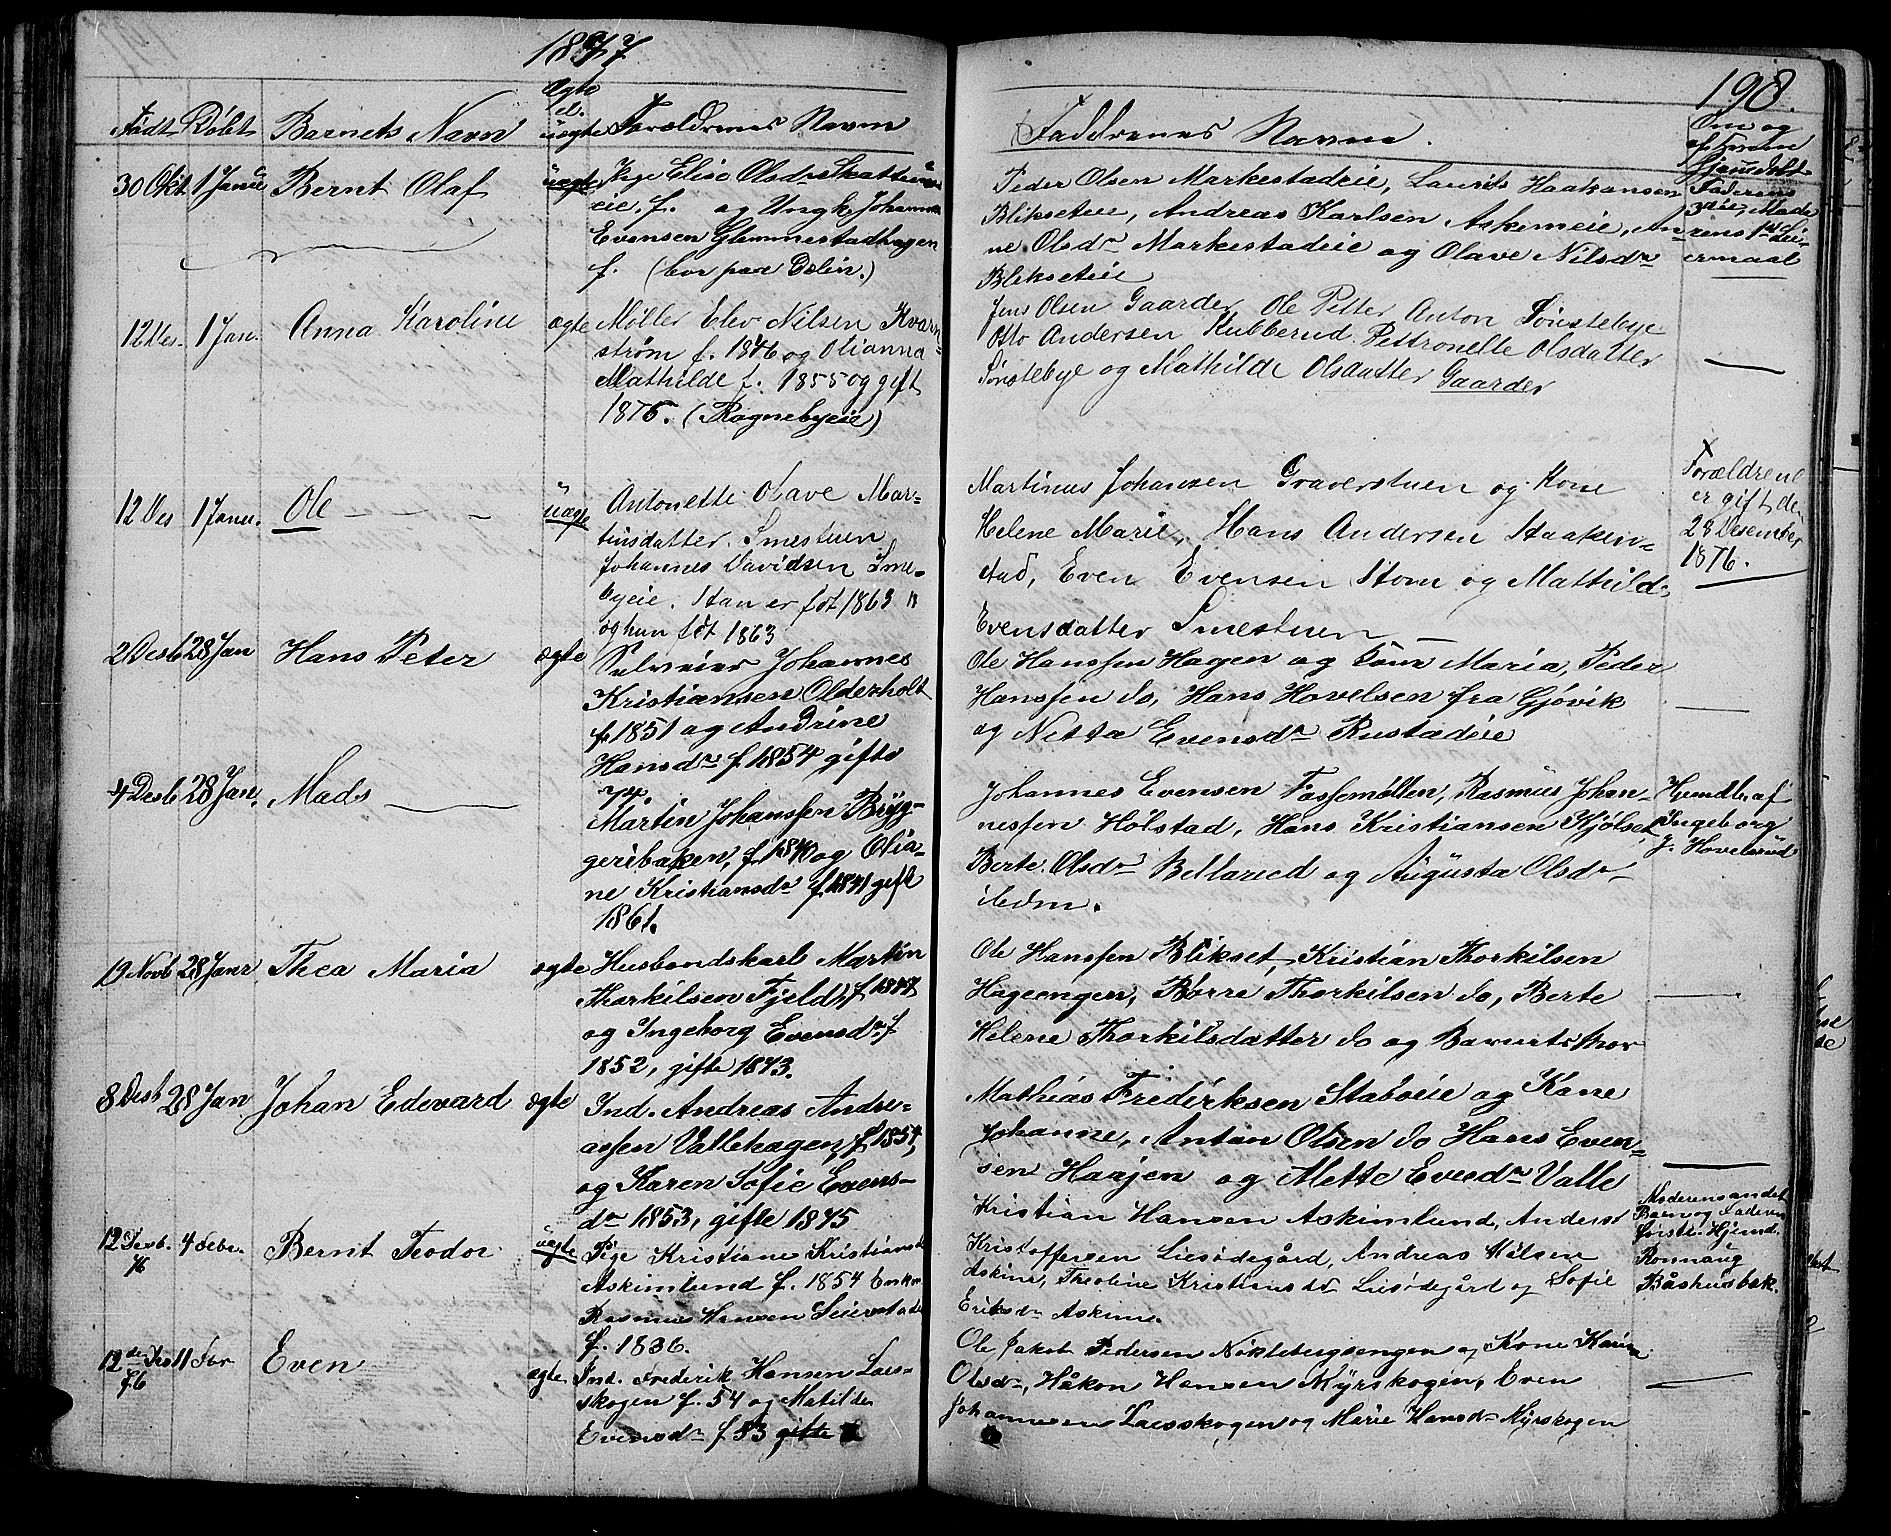 1877
190.
Ægte
el.
Født Døbt Barnets Navn uægte Forældrenes Navn
Faddrenes Navne.
Om og
af hvem
hjemdøbt
30 Okt 1 Janu Bernt Olaf uægte Pige Elise Olsdr
eie. f. og Ungk. Johannes
Evensen Glemmestadhagen
f. (bor paa Eslin.)
Peder Olsen Markestadeie, Laurits Haakansen
Blikseteie, Andreas Karlsen Askimeie, An-
ne Olsdr Markestadeie og Olave Nilsdr
Blikseteie
Faderens
3die, Mode
rens 1ste Lei-
ermaal
12 Des. 1 Jan. Anna Karoline ægte Møller Elev Nilsen Kvarn-
strøm f. 1846 og Olianna
Mathilde f. 1855 og gift
1876. (Rognebyeie)
Jens Olsen Gaarder, Ole Petter Anton Sønstebye
Otto Andersen Kubberud. Pettronelle Olsdatter
Sønstebye og Mathilde Olsdatter Gaarder
12 Des 1 Janu. Ole uægte Antonette Olave Mar-
tinsdatter. Smestuen
Johannes Davidsen Sme-
byeie. Han er føt 1863
og hun føt 1863
Martinus Johansen Graverstuen og Kone
Helene Marie, Hans Andersen Haaken-
stad, Even Evensen Hom og Mathilde
Evensdatter Smestuen
Forældrene
er gift de
28 Desember
1876.
2 Desb 28 Jan Hans Peter ægte Selveier Johannes
Kristiansen Olderholt
f. 1851 og Andrine
Hansdr f. 1854 gifte
74.
Ole Hanssen Hagen og Maria, Peder
Hanssen do, Hans Hovelsen fra Gjøvik
og Netta Evensdr Rustadeie
4 Desb 28 Jan. Mads
Martin Johanssen Bryg-
geribakken, f. 1840 og Olia-
ne Kristiansdr f. 1841 gift
1861.
Johannes Evensen Fossemøllen, Rasmus Johan-
nessen Hølstad, Hans Kristiansen Kjølset,
Berte Olsdr Bellarud og Augusta Olsdr
ibdm.
Hjemdb. af
Ingeborg
J. Hovelsrud
19 Novb 28 Janr Thea Maria ægte Husbondskarl Martin
Thorkilsen Fjeld, f. 1847
og Ingeborg Evensdr f.
1852, gifte 1873.
Ole Hanssen Blikset, Kristian Thorkilsen
Hageengen, Børre Thorkilsen do, Berte
Helene Thorkilsdatter do og Barnets Mor
8 Desb 28 Jan Johan Edevard ægte Ind. Andreas Andre-
assen Vallehagen, f. 1854,
og Karen Sofie Evens-
dr 1853, gifte 1875
Mathias Frederiksen Staboeie og Kone
Johanne, Anton Olsen do Hans Even-
sen Haajen og Mette Evensdr Valle
12 Desb. 76 4 Febr. Bernt Teodor uægte Pige Kristiane Kristiansdr
Askimlund f. 1854 Enkem.
Rasmus Hansen Seierstad
f. 1836.
Kristian Hansen Askimlund, Anders
Kristoffersen Liesødegård, Andreas Nilsen
Askim, Theoline Kristiansdr Liesødegård og Sofie
Eriksdr Askim.
Moderens andet
Barn og Faderens
første. Hjemd.
Ronnaug
Båshusbak.
12 de Des 76 11 Feb Even ægte Ind. Frederik Hansen Laes-
skogen f. 54 og Matilde
Evensdr f. 53 gifte
Ole Jakob Pedersen Nøklebergsengen og Kone Karen
Olsdr, Håkon Hansen Myrskogen, Even
Johannesen Laesskogen og Marie Hansdr Myrskogen